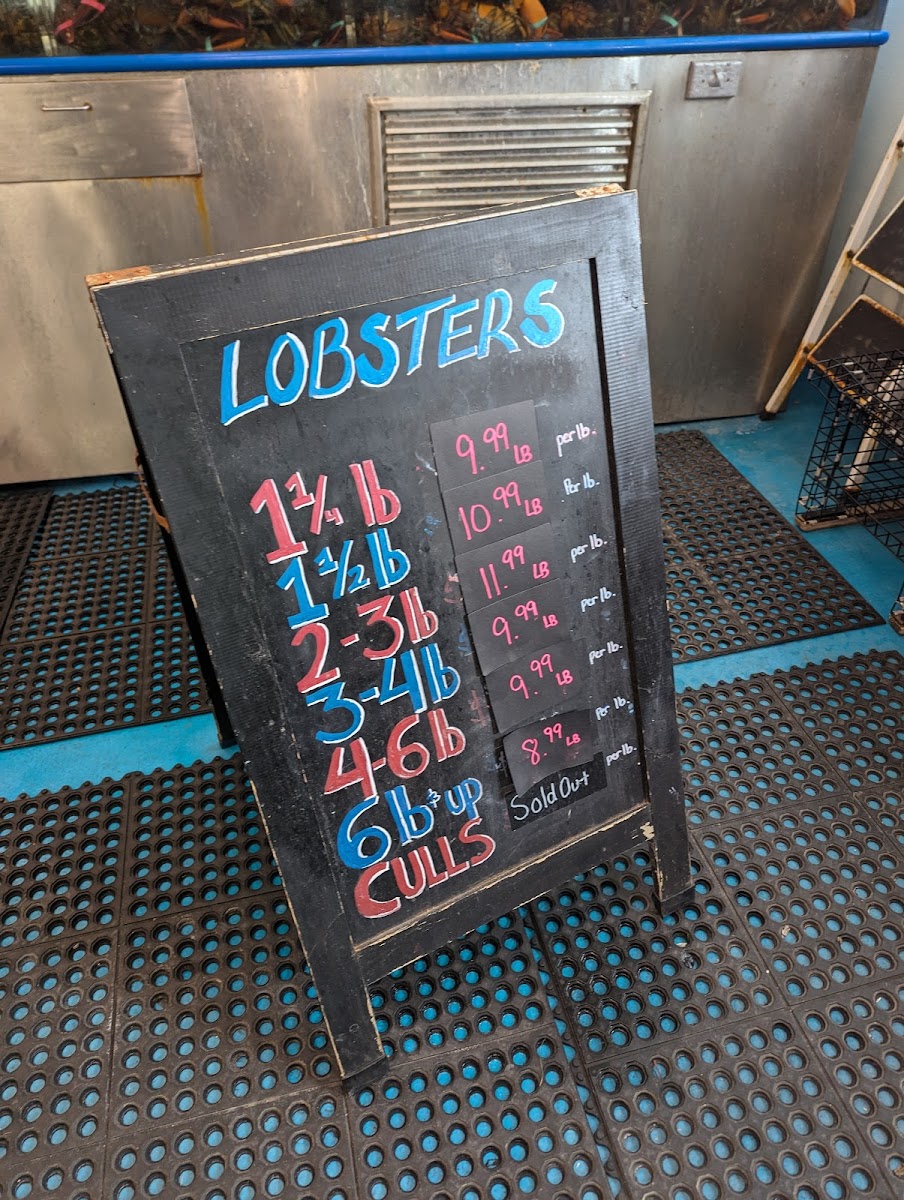 LOBSTERS
1 1/4 lb 9.99 LB per lb.
1 1/2 lb 10.99 LB Per lb.
2-3 lb 11.99 LB per lb.
3-4 lb 9.99 LB per lb.
4-6 lb 9.99 LB per lb.
6 lb & up 8.99 LB per lb.
CULLS Sold Out per lb.